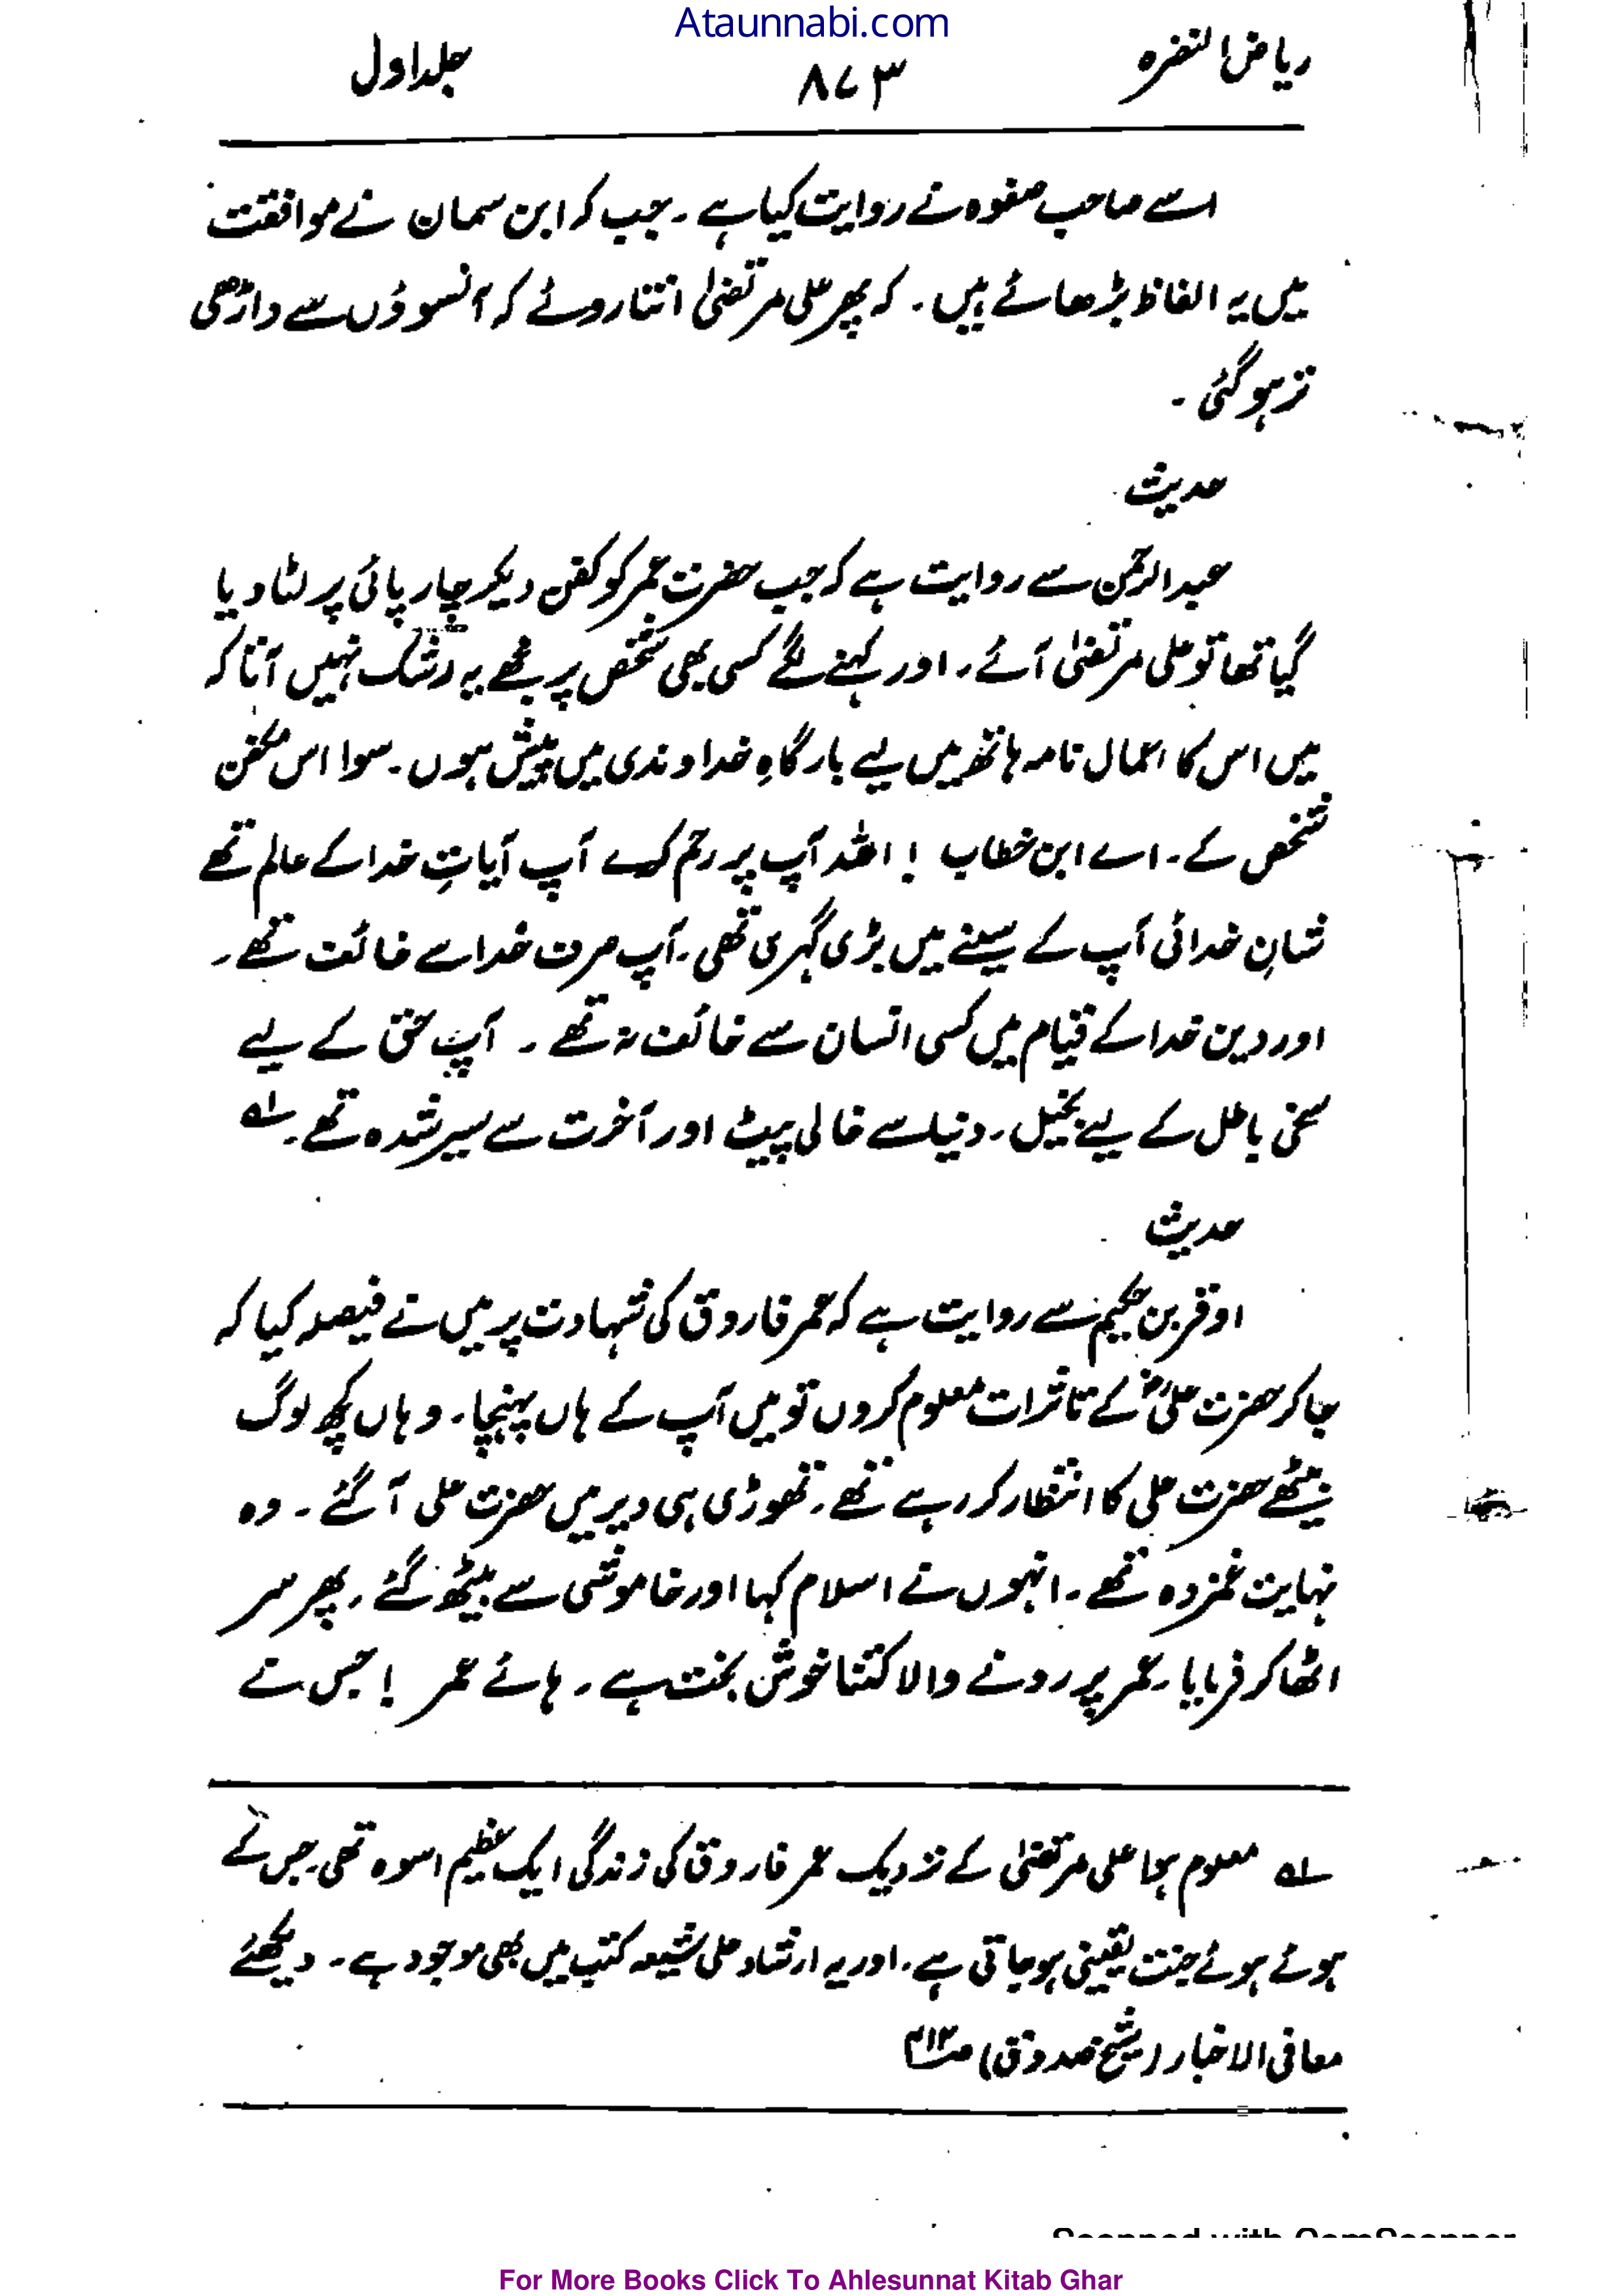 Ataunnabi.com
ریاض النضرہ ۸۷۳ جلد اول
اسے صاحب صفوہ نے روایت کیا ہے ۔ جب کہ ابن سمان نے موافقت
میں یہ الفاظ بڑھائے ہیں ۔ کہ پھر علی مرتضیٰ اتنا روئے کہ آنسوؤں سے داڑھی
تر ہو گئی ۔
حدیث
عبدالرحمٰن سے روایت ہے کہ جب حضرت عمر کو کفن دیکر چارپائی پر لٹا دیا
گیا تھا تو علی مرتضیٰ آئے ۔ اور کہنے لگے کسی بھی شخص پر مجھے یہ رشک نہیں آتا کہ
میں اس کا اعمال نامہ ہاتھ میں لیے بارگاہِ خداوندی میں پیش ہوں ۔ سوا اس کفن
شخص کے ۔ اے ابن خطاب ! اللہ آپ پر رحم کرے آپ آیاتِ خدا کے عالم تھے
شانِ خدائی آپ کے سینے میں بڑی گہری تھی ۔ آپ صرف خدا سے خائف تھے ۔
اور دین خدا کے قیام میں کسی انسان سے خائف نہ تھے ۔ آپ حق کے لیے
سخی باطل کے لیے بخیل ۔ دنیا سے خالی پیٹ اور آخرت سے سیر شدہ تھے ۔ ؎۱
حدیث
اوقر بن حکیم سے روایت ہے کہ عمر فاروق کی شہادت پر میں نے فیصلہ کیا کہ
جا کر حضرت علیؓ کے تاثرات معلوم کروں تو میں آپ کے ہاں پہنچا ۔ وہاں کچھ لوگ
بیٹھے حضرت علی کا انتظار کر رہے تھے ۔ تھوڑی ہی دیر میں حضرت علی آ گئے ۔ وہ
نہایت غمزدہ تھے ۔ انہوں نے اسلام کہا اور خاموشی سے بیٹھ گئے ۔ پھر سر
اٹھا کر فرمایا ۔ عمر پر رونے والا کتنا خوش بخت ہے ۔ ہائے عمر ! جس نے
؎۱ معلوم ہوا علی مرتضیٰ کے نزدیک عمر فاروق کی زندگی ایک عظیم اسوہ تھی جس کے
ہوئے ہوئے جنت یقینی ہو جاتی ہے ۔ اور یہ ارشاد علی شیعہ کتب میں بھی موجود ہے ۔ دیکھئے
معانی الاخبار (شیخ صدوق) ص۴۱۲
Scanned with CamScanner
For More Books Click To Ahlesunnat Kitab Ghar